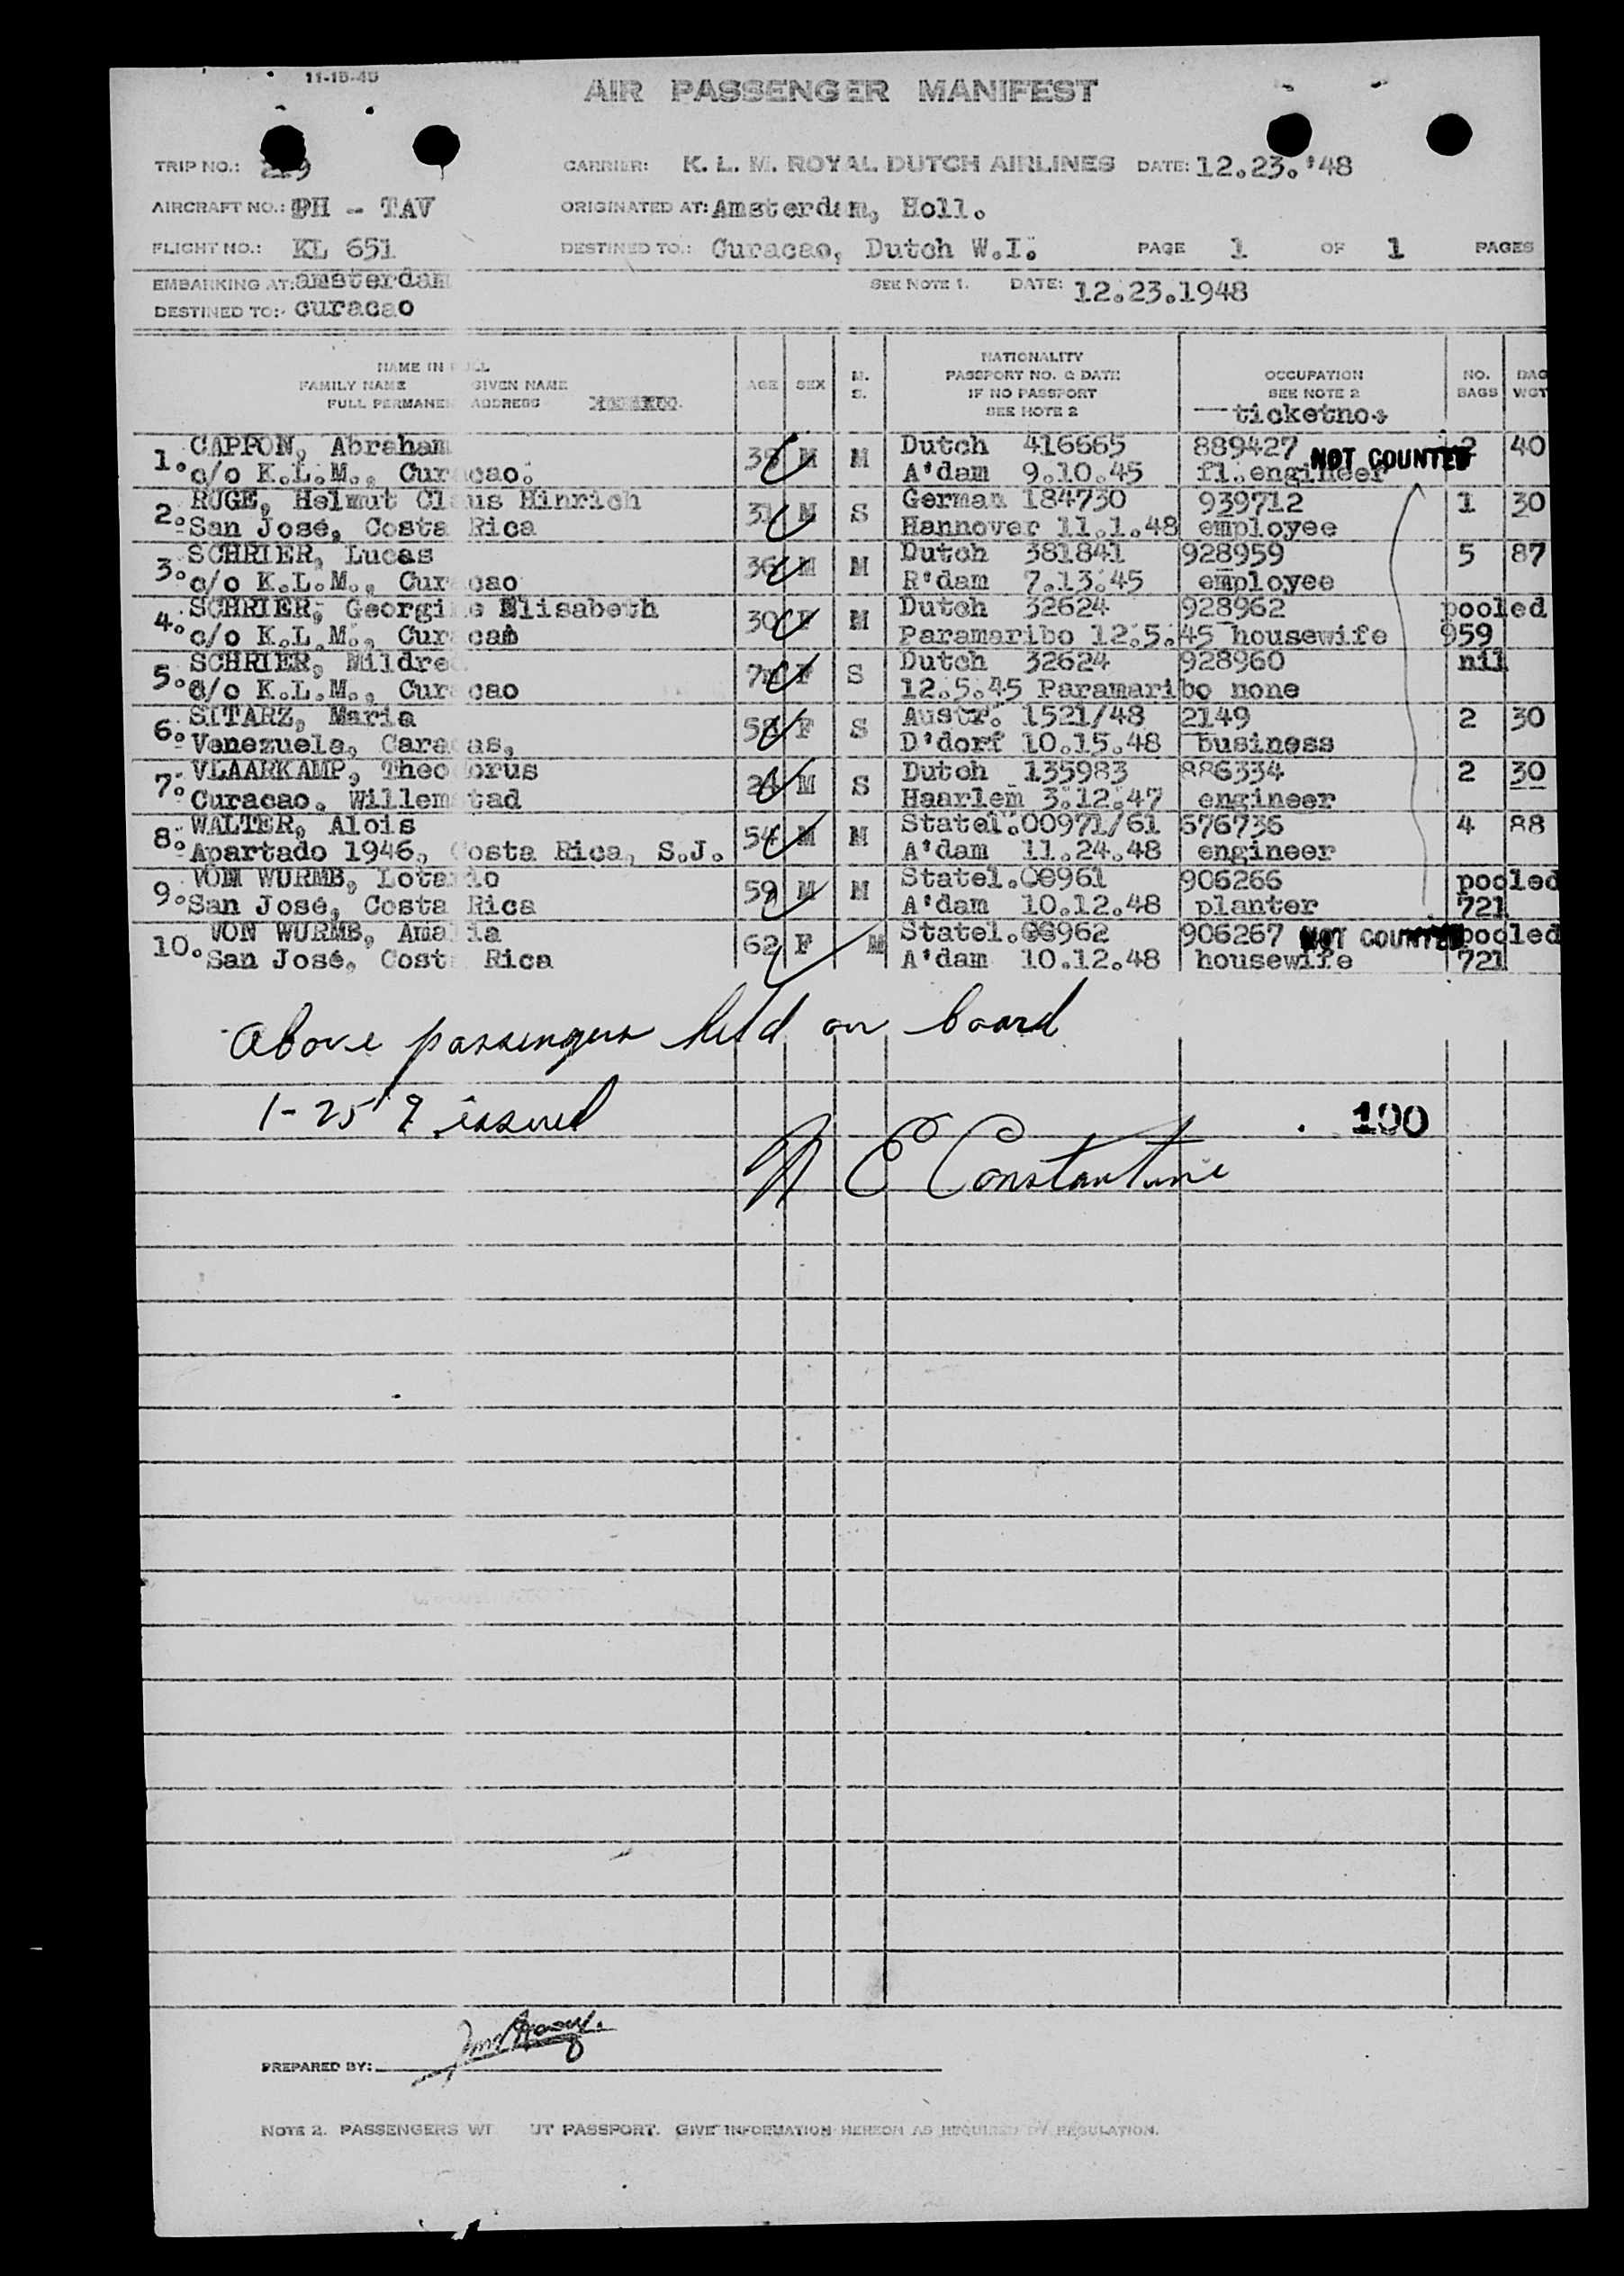 11-15-45
AIR PASSENGER MANIFEST
TRIP NO.: CARRIER: K. L. M. ROYAL DUTCH AIRLINES DATE: 12.23.'48
AIRCRAFT NO.: PH - TAV ORIGINATED AT: Amsterdam, Holl.
FLIGHT NO.: KL 651 DESTINED TO.: Curacao, Dutch W.I. PAGE 1 OF 1 PAGES
EMBARKING AT: amsterdam SEE NOTE 1. DATE: 12.23.1948
DESTINED TO:- curacao
NAME IN FULL
FAMILY NAME GIVEN NAME
FULL PERMANEN ADDRESS
AGE SEX M. S.
NATIONALITY
PASSPORT NO. & DATE
IF NO PASSPORT
SEE NOTE 2
OCCUPATION
SEE NOTE 2
ticketno.
NO. BAGS BAG WGT
1. CAPPON, Abraham 38 M M Dutch 416665 889427 NOT COUNTED 2 40
c/o K.L.M., Curacao. A'dam 9.10.45 fl.engineer
2. RUGE, Helmut Claus Hinrich 31 M S German 184730 939712 1 30
San José, Costa Rica Hannover 11.1.48 employee
3. SCHRIER, Lucas 36 M M Dutch 381841 928959 5 87
c/o K.L.M., Curacao R'dam 7.13.45 employee
4. SCHRIER, Georgine Elisabeth 30 F M Dutch 32624 928962 pooled
c/o K.L.M., Curacao Paramaribo 12.5.45 housewife 959
5. SCHRIER, Mildred F S Dutch 32624 928960 nil
c/o K.L.M., Curacao 12.5.45 Paramaribo none
6. SITARZ, Maria F S Austr. 1521/48 2149 2 30
Venezuela, Caracas, D'dorf 10.15.48 business
7. VLAARKAMP, Theodorus 24 M S Dutch 135983 886334 2 30
Curacao. Willemstad Haarlem 3.12.47 engineer
8. WALTER, Alois 54 M M Statel.00971/61 676736 4 88
Apartado 1946, Costa Rica, S.J. A'dam 11.24.48 engineer
9. VON WURMB, Lotario 59 M M Statel.00961 906266 pooled
San José, Costa Rica A'dam 10.12.48 planter 721
10. VON WURMB, Amalia 62 F M Statel.00962 906267 NOT COUNTED pooled
San José, Costa Rica A'dam 10.12.48 housewife 721
Above passengers held on board
1-25 issued
100
N E Constantine
PREPARED BY:
NOTE 2. PASSENGERS WI UT PASSPORT. GIVE INFORMATION HEREON AS REQUIRED BY REGULATION.